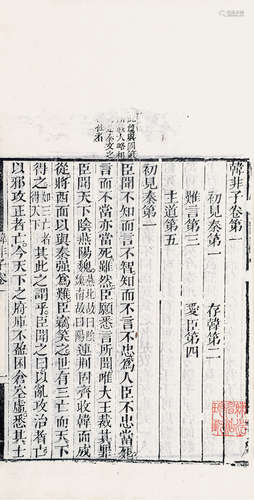 韓非子卷第一
初見秦第一 存韓第二
難言第三 愛臣第四
主道第五
初見秦第一
臣聞不知而言不智知而不言不忠爲人臣不忠當死
言而不當亦當死雖然臣願悉言所聞唯大王裁其罪
臣聞天下陰燕陽魏燕北故曰陰魏南故曰陽連荊固齊收韓而成
從將西面以與秦強爲難臣竊笑之世有三亡而天下
得之知三亡者得天下其此之謂乎臣聞之曰以亂攻治者亡
以邪攻正者亡今天下之府庫不盈囷倉空虛悉其士
韓非子卷一